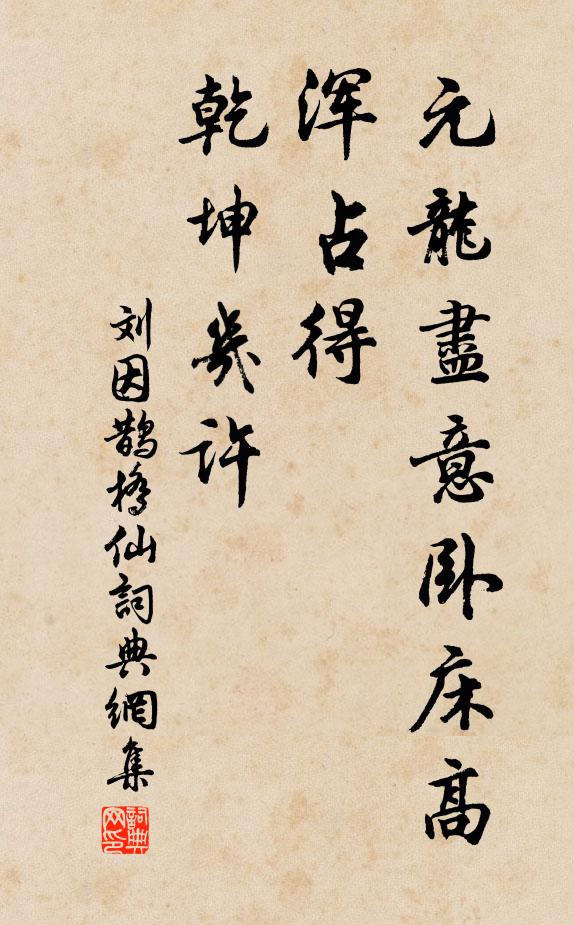 元龍盡意卧床高
渾占得
乾坤幾許
刘因鹊橋仙詞典網集
詞典網印